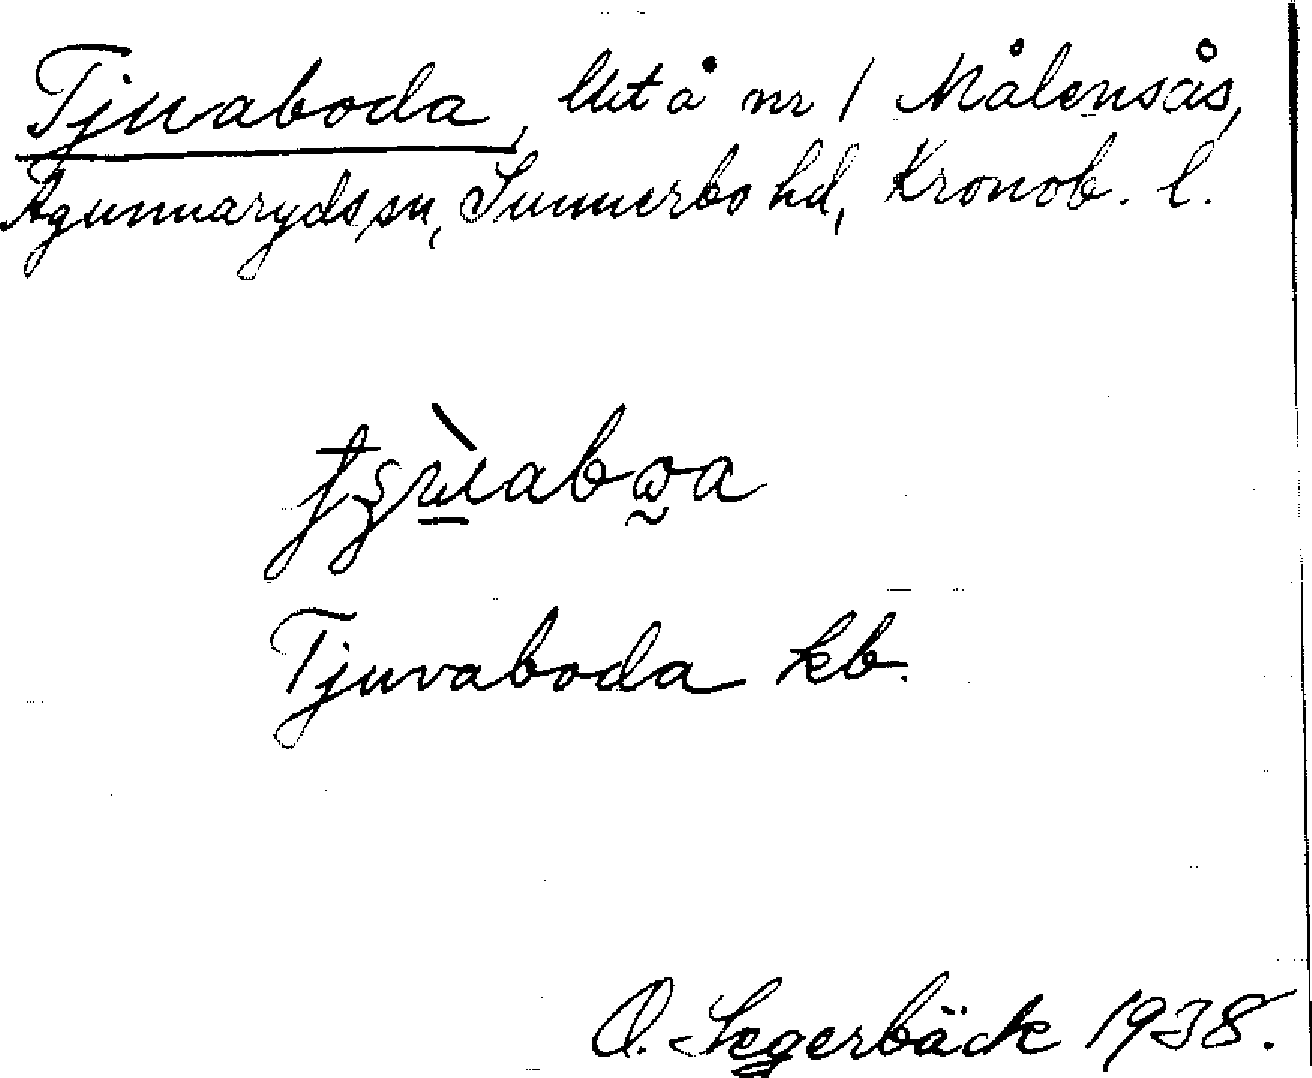 Tjuaboda, Ut å nr 1 Målensås,
Agunnaryds sn, Sunnerbo hd, Kronob. l.
Tjuvaboda kb.
O. Segerbäck 1938.